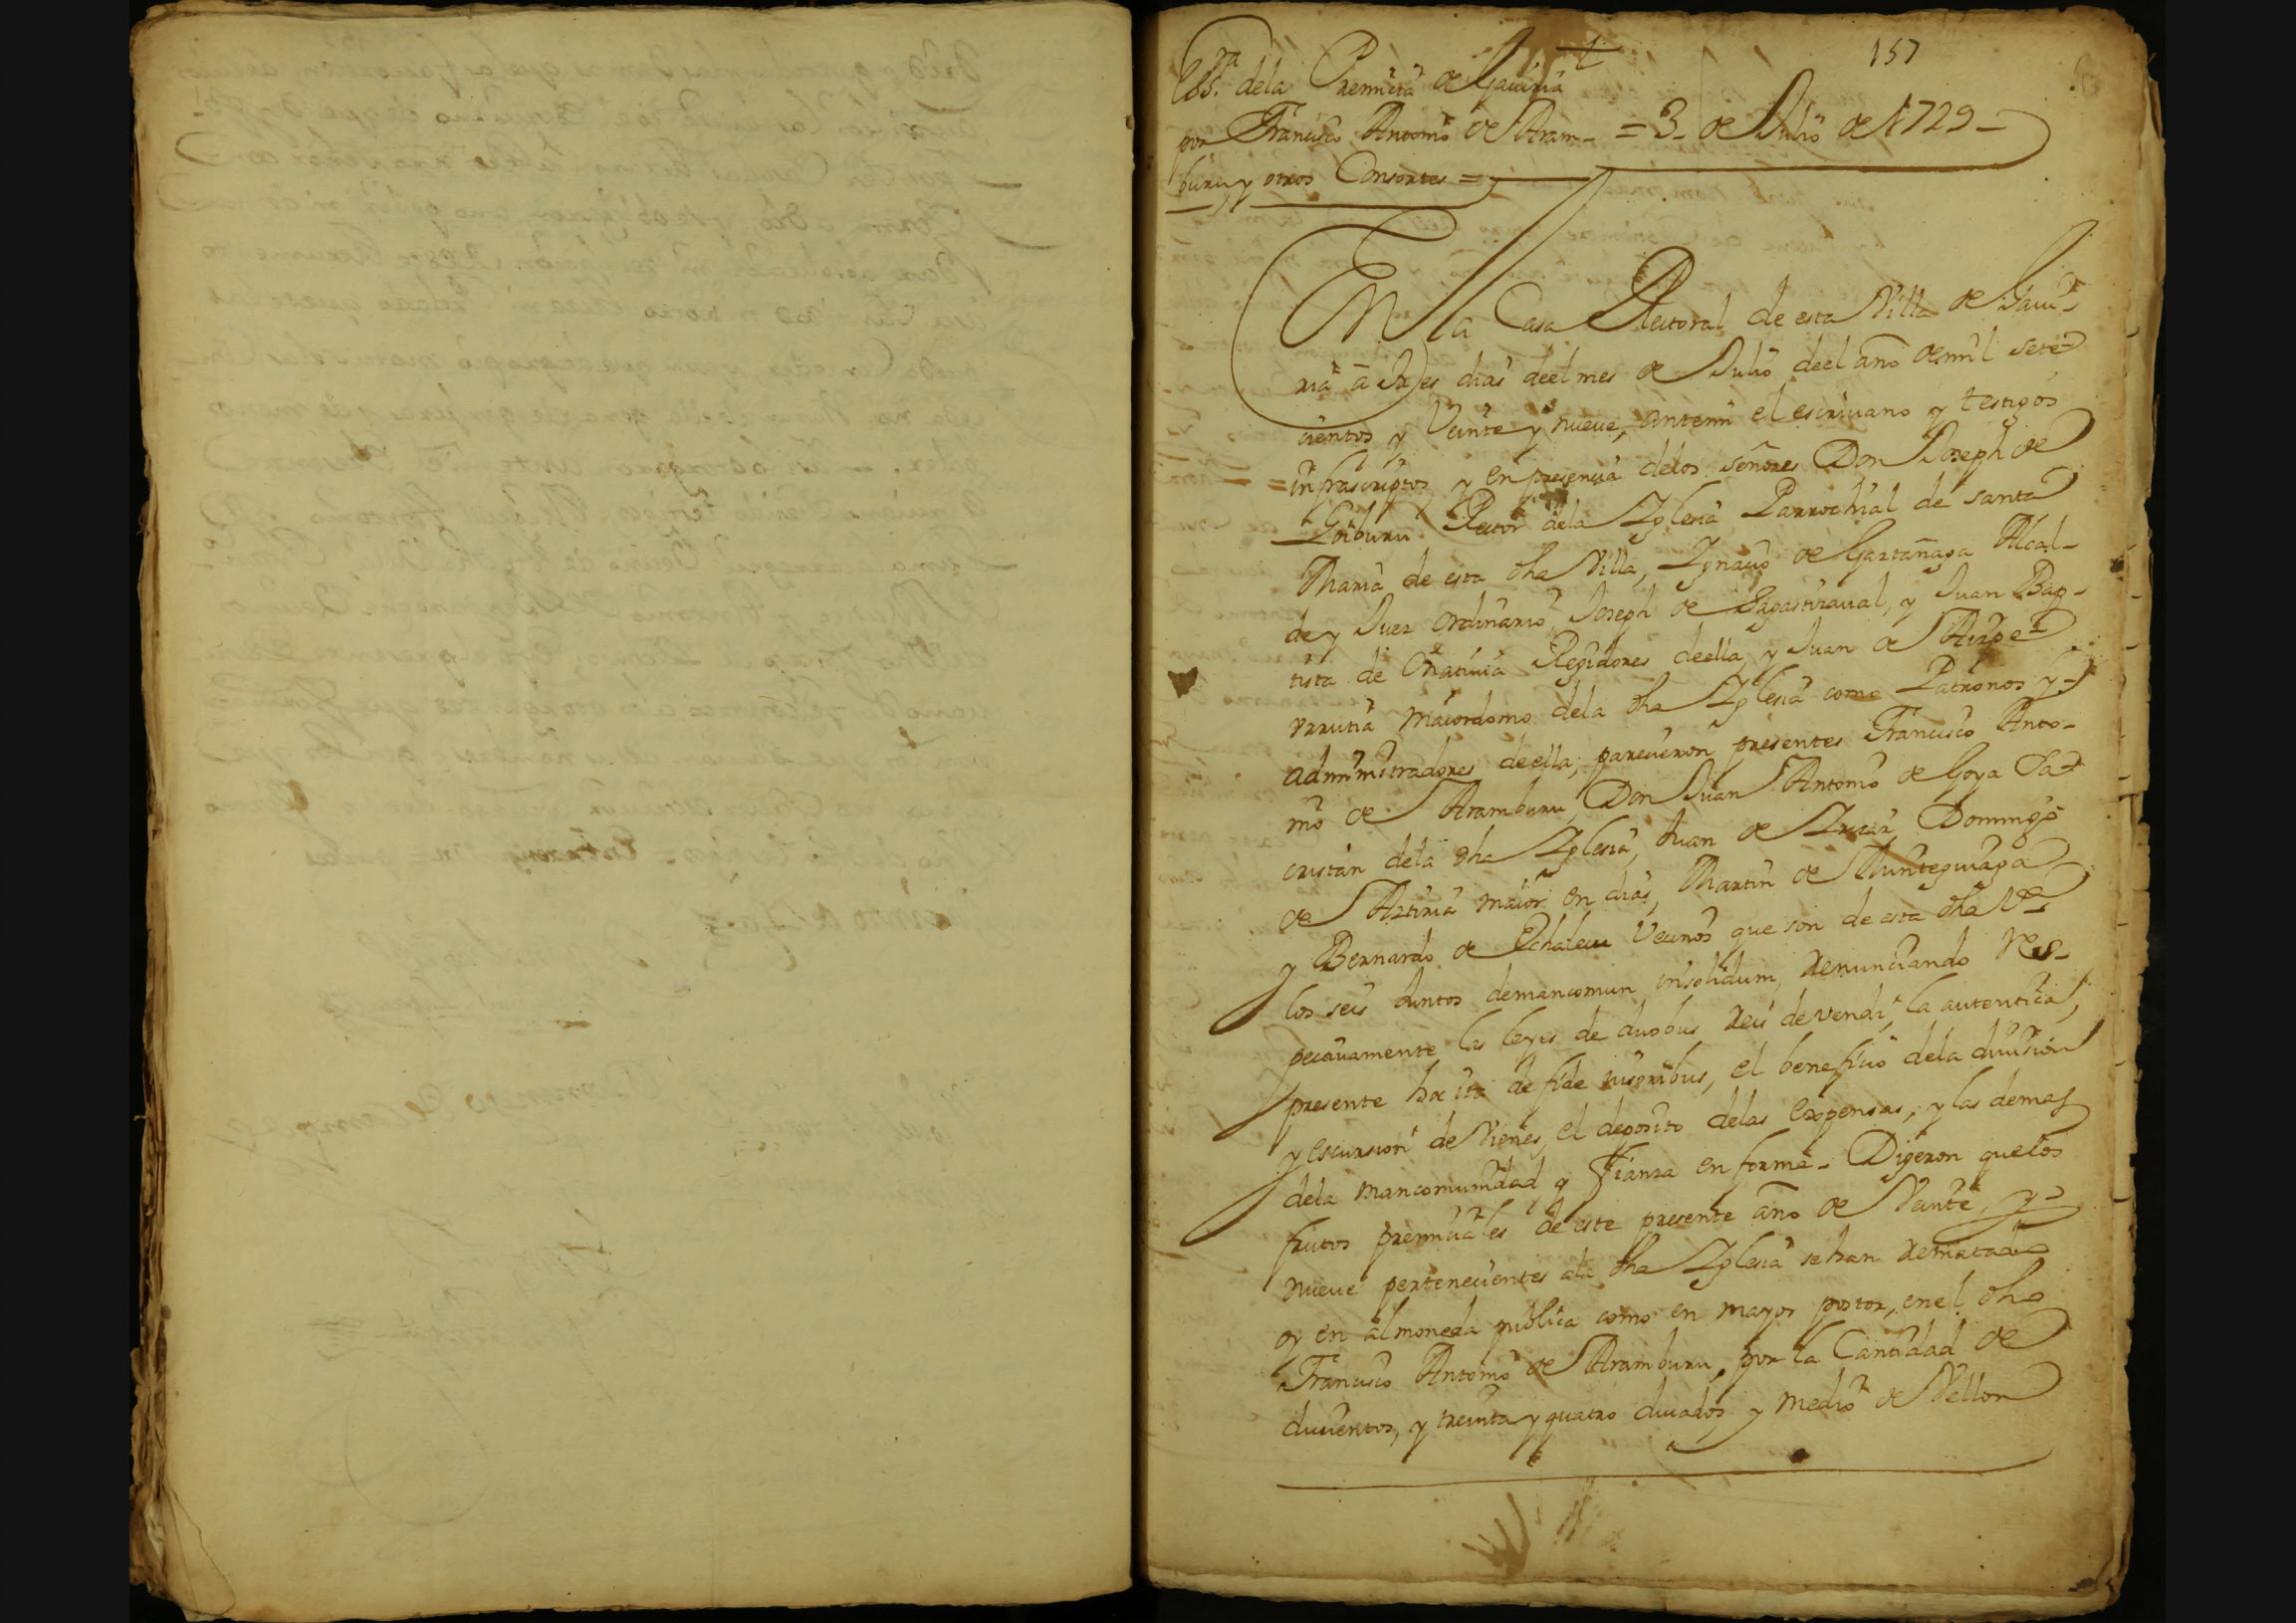 157
Obs.ra dela Premicia de Gaviria
por Francisco Antonio de Aram- = 3 de Julio de 1729 -
buru, y otros Consortes =
En la Casa Rectoral de esta Villa de Gavi-
ria a tres dias deel mes de Julio deel año de mil sete-
cientos y Veinte y nueve, antemi el escrivano y testigos
infrascriptos y en presencia delos señores Don Joseph de
Rector dela Iglesia Parrochial de santa
Maria de esta dha Villa, Ignacio de Gartañaga Alcal-
de y Juez ordinario, Joseph de Sagastizaval, y Juan Bap-
tista de Oñativia Regidores deella, y Juan de Aizpe-
urrutia maiordomo dela dha Iglesia como Patronos y
administradores deella; parecieron presentes Francisco Anto-
nio de Aramburu, Don Juan Antonio de Goya Sa-
cristan dela dha Iglesia, Juan de Domingo
de Aztiria maior en dias, Martin de
y Bernardo de Echalecu Vecinos que son de esta dha Va
los seis Juntos demancomun insolidum, renunciando Res-
pectivamente las leyes de duobus reis devendi, la autentica,
presente hoc ita de fide iusoribus, el beneficio dela division
y escursion de Vienes, el deposito delas expensas, y las demas
dela mancomunidad y fianza en forma - Digeron quelos
frutos premiciales de este presente año de Veinte, y
nueve pertenecientes ala dha Iglesia sehan rematado
oy en almoneda publica como en mayor postor, enel dho
Francisco Antonio de Aramburu, por la Cantidad de
ducientos, y treinta y quatro ducados y medio de Vellon